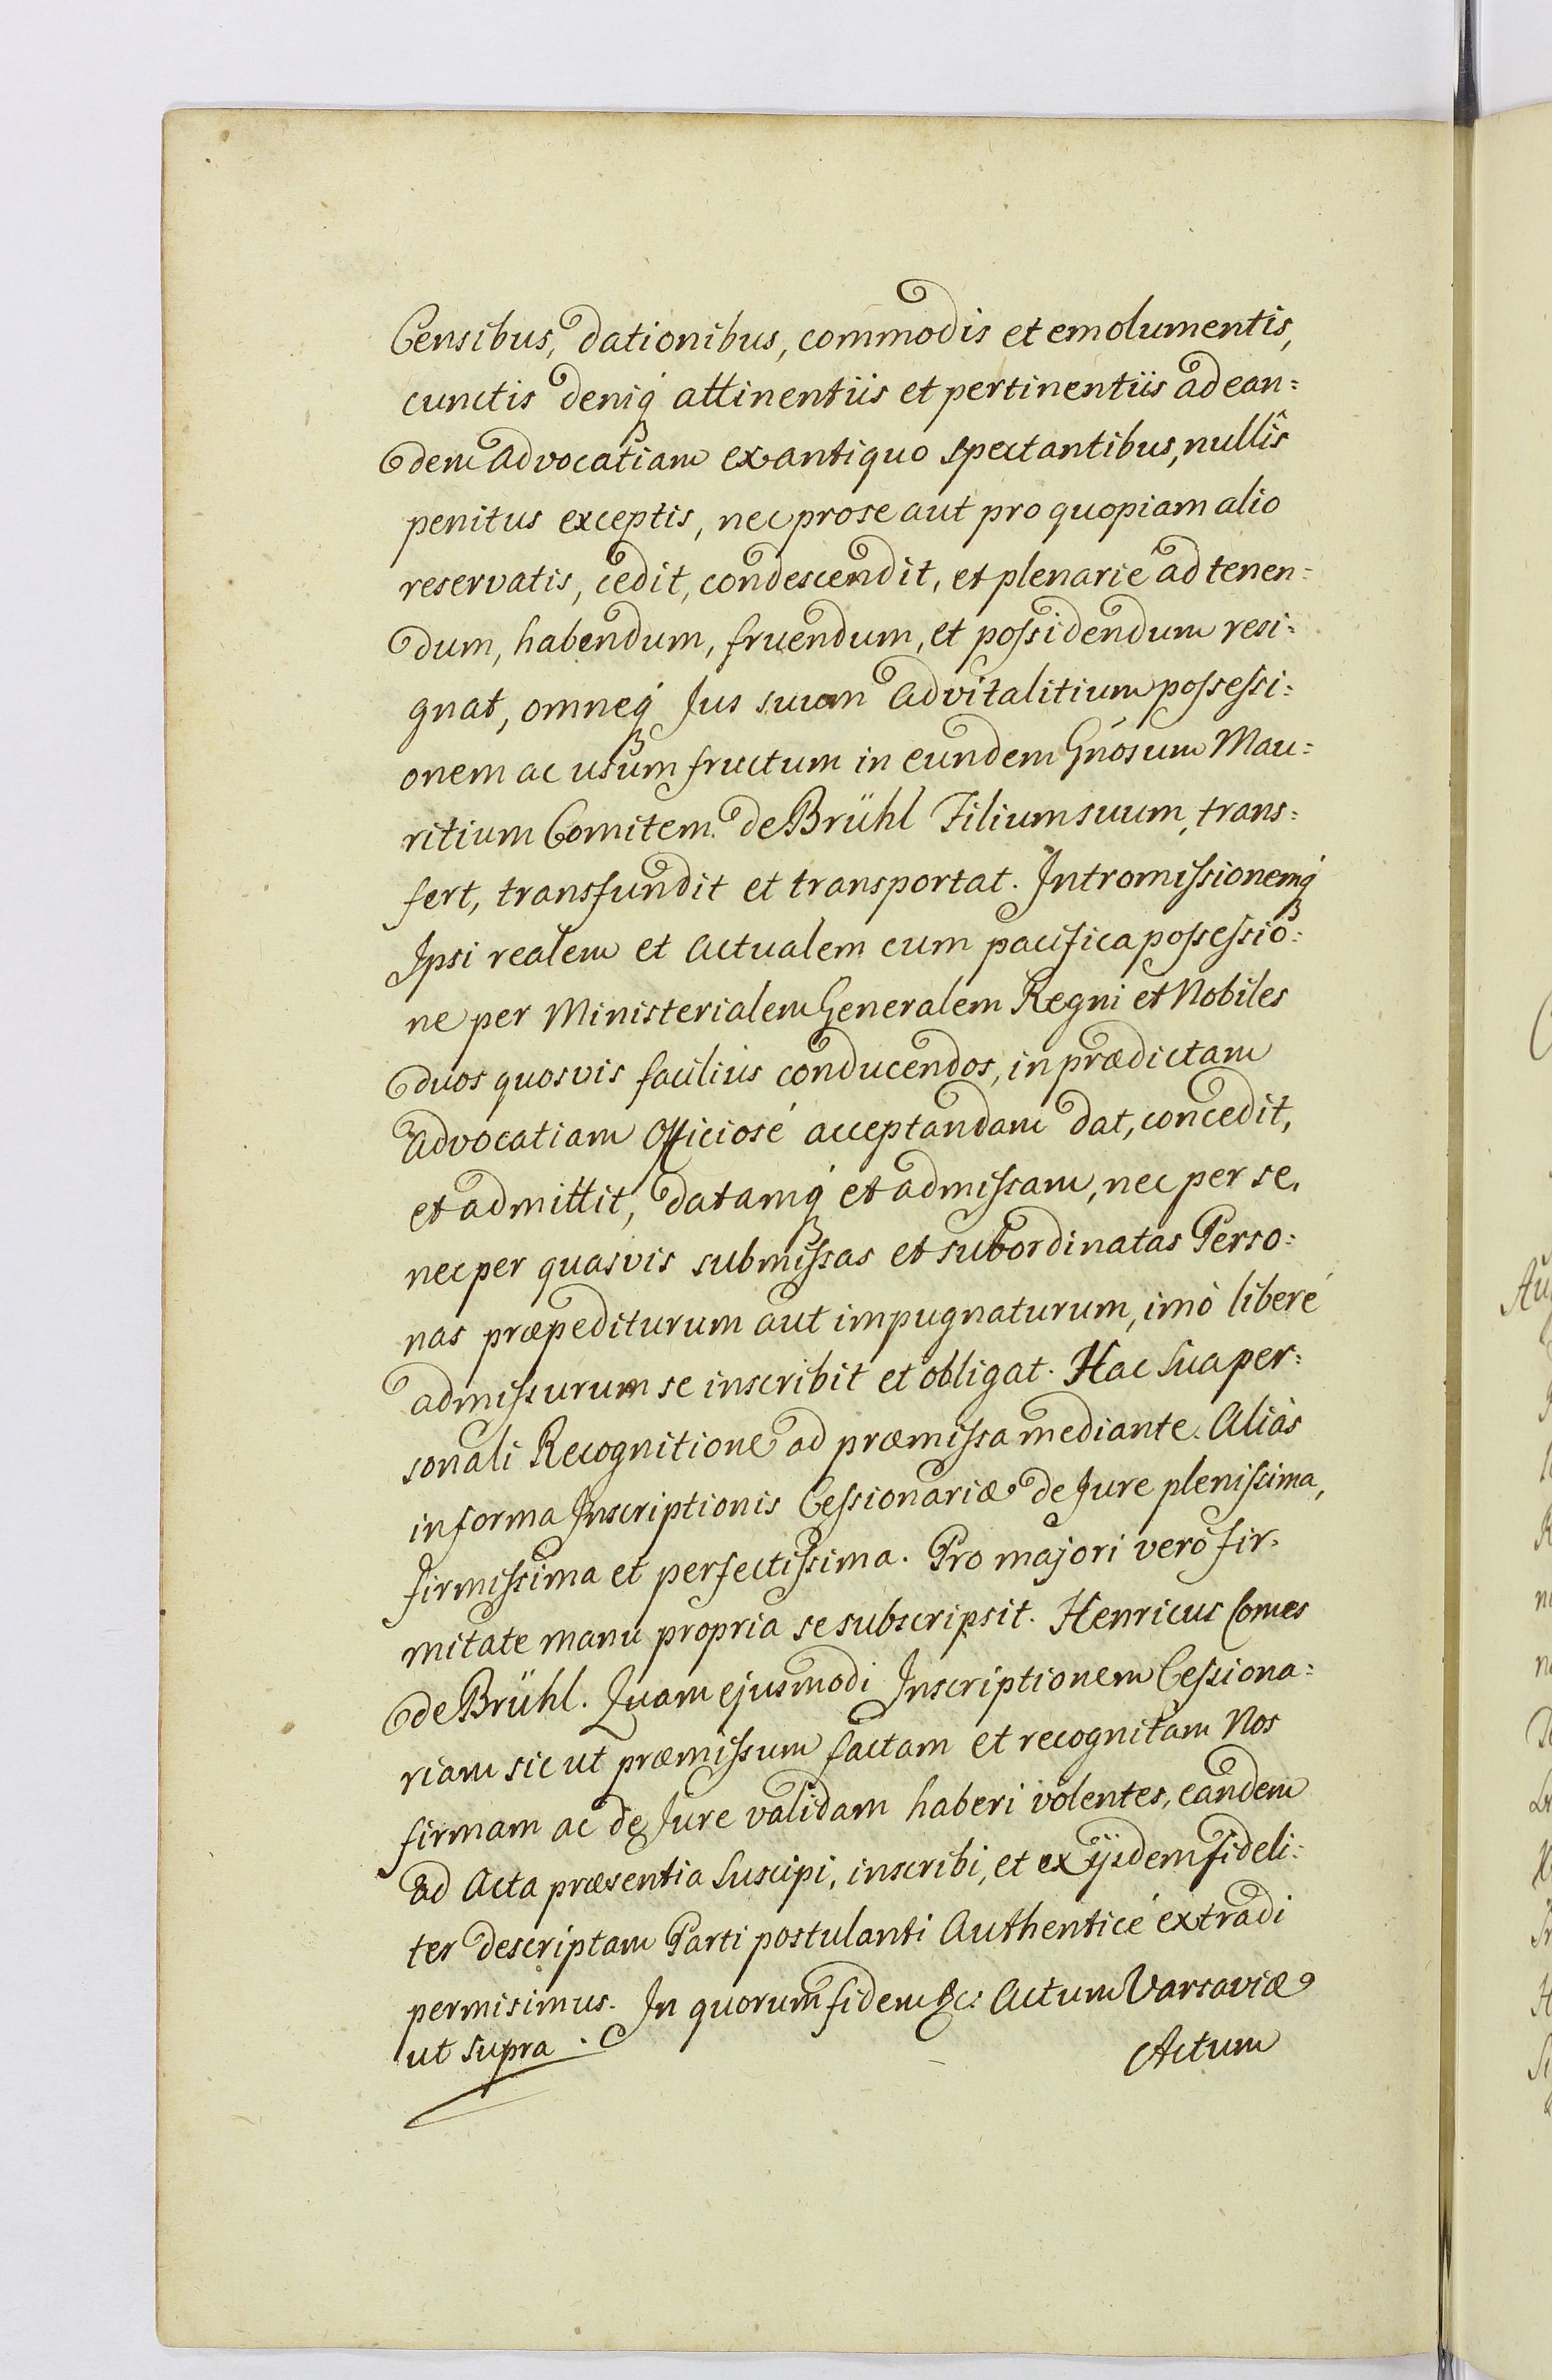 Censibus, dationibus, commodis et emolumentis,
cunctis deniq́ attinentiis et pertinentiis ad ean=
dem Advocatiam ex antiquo spectantibus, nullis
penitus exceptis, nec pro se aut pro quopiam alio
reservatis, cedit, condescendit, et plenarie ad tenen=
dum, habendum, fruendum, et possidendum resi=
gnat, omneq́ Jus suum Advitalitium possessi=
onem ac usum fructum in eundem Gnosum Mau=
ritium Comitem de Brühl Filium suum, trans=
fert, transfundit et transportat. Intromissionemq́
Ipsi realem et Actualem cum pacifica possessio=
ne per Ministerialem Generalem Regni et Nobiles
duos quosvis faciliùs conducendos, in prædictam
Advocatiam Officiosé acceptandam dat, concedit,
et admittit, datamq́ et admissam, nec per se,
nec per quasvis submissas et subordinatas Perso=
nas præpediturum aut impugnaturum, imò liberé
admissurum se inscribit et obligat. Hac Sua per=
sonali Recognitione ad præmissa mediante. Aliàs
in forma Inscriptionis Cessionariæ de Jure plenissima,
firmissima et perfectissima. Pro majori verò fir=
mitate manu propria se subscripsit. Henricus Comes
de Brühl. Quam ejusmodi Inscriptionem Cessiona=
riam sic ut præmissum factam et recognitam Nos
firmam ac de Jure validam haberi volentes, eandem
ad Acta præsentia Suscipi, inscribi, et ex ijsdem fideli=
ter descriptam Parti postulanti Authenticé extradi
permisimus. In quorum fidem &c: Actum Varsaviæ
ut Supra.
Actum